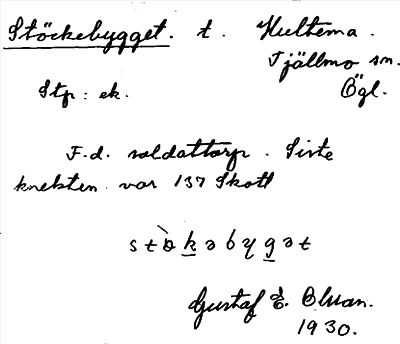 Stöckebygget. t. Hultema.
Tjällmo sn.
Stp: ek. Ögl.
F.d. soldattorp. Siste
knekten var 137 Skott
stòkəbygət
Gustaf E. Olsson.
1930.